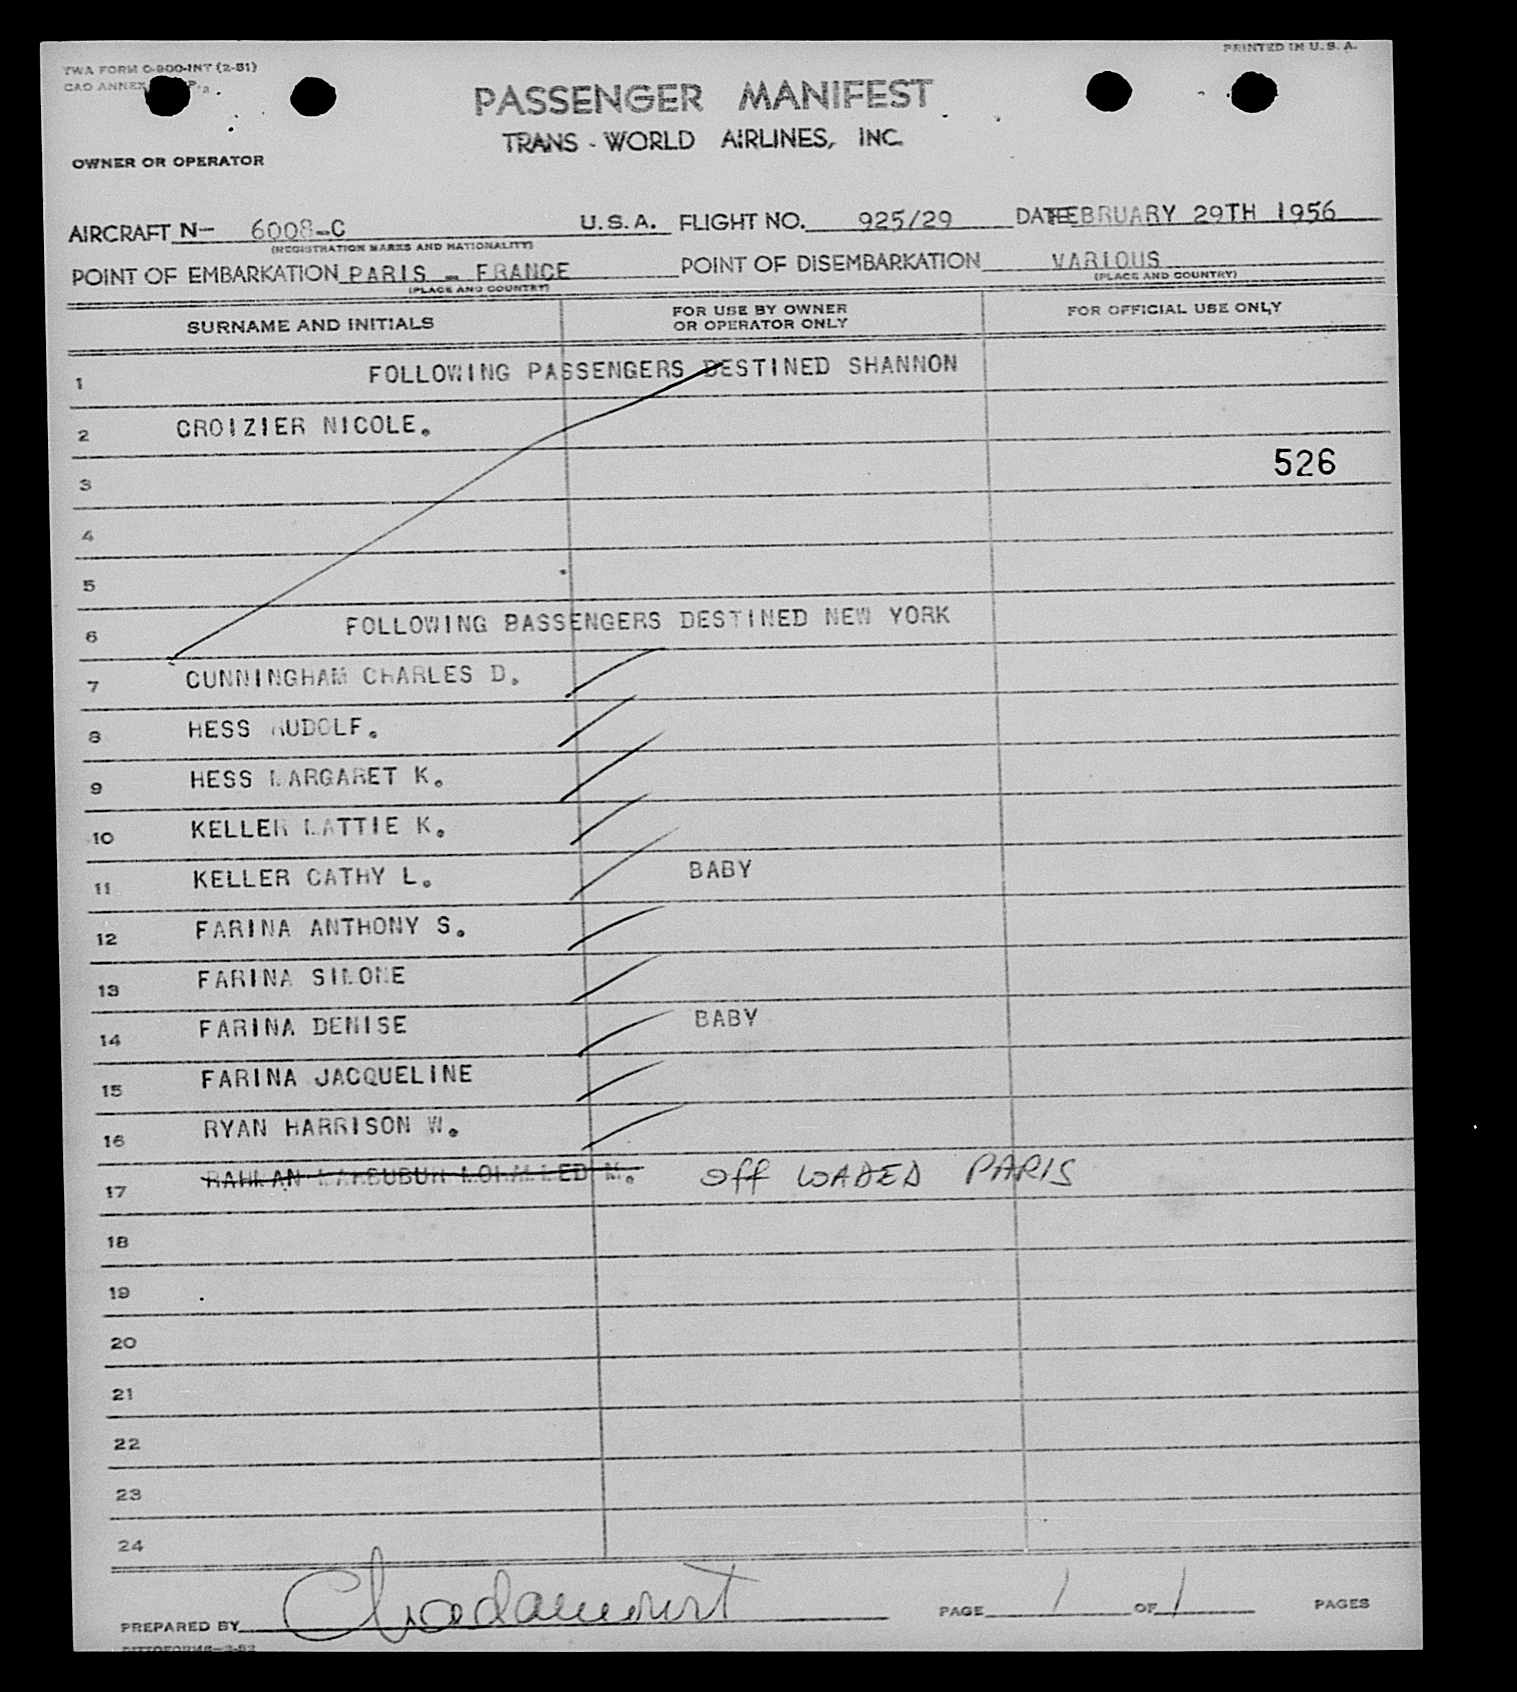 TWA FORM O-900-INT (2-51)
PRINTED IN U.S.A.
CAO ANNEX
PASSENGER MANIFEST
TRANS - WORLD AIRLINES, INC.
OWNER OR OPERATOR
AIRCRAFT N- 6008-C U.S.A. FLIGHT NO. 925/29 DATE FEBRUARY 29TH 1956
(REGISTRATION MARKS AND NATIONALITY)
POINT OF EMBARKATION PARIS - FRANCE POINT OF DISEMBARKATION VARIOUS
(PLACE AND COUNTRY) (PLACE AND COUNTRY)
SURNAME AND INITIALS FOR USE BY OWNER OR OPERATOR ONLY FOR OFFICIAL USE ONLY
1 FOLLOWING PASSENGERS DESTINED SHANNON
2 CROIZIER NICOLE.
526
3
4
5
6 FOLLOWING BASSENGERS DESTINED NEW YORK
7 CUNNINGHAM CHARLES D.
8 HESS RUDOLF.
9 HESS MARGARET K.
10 KELLER MATTIE K.
11 KELLER CATHY L. BABY
12 FARINA ANTHONY S.
13 FARINA SIMONE
14 FARINA DENISE BABY
15 FARINA JACQUELINE
16 RYAN HARRISON W.
17 RAHMAN M. off LOADED PARIS
18
19
20
21
22
23
24
PREPARED BY PAGE 1 OF 1 PAGES